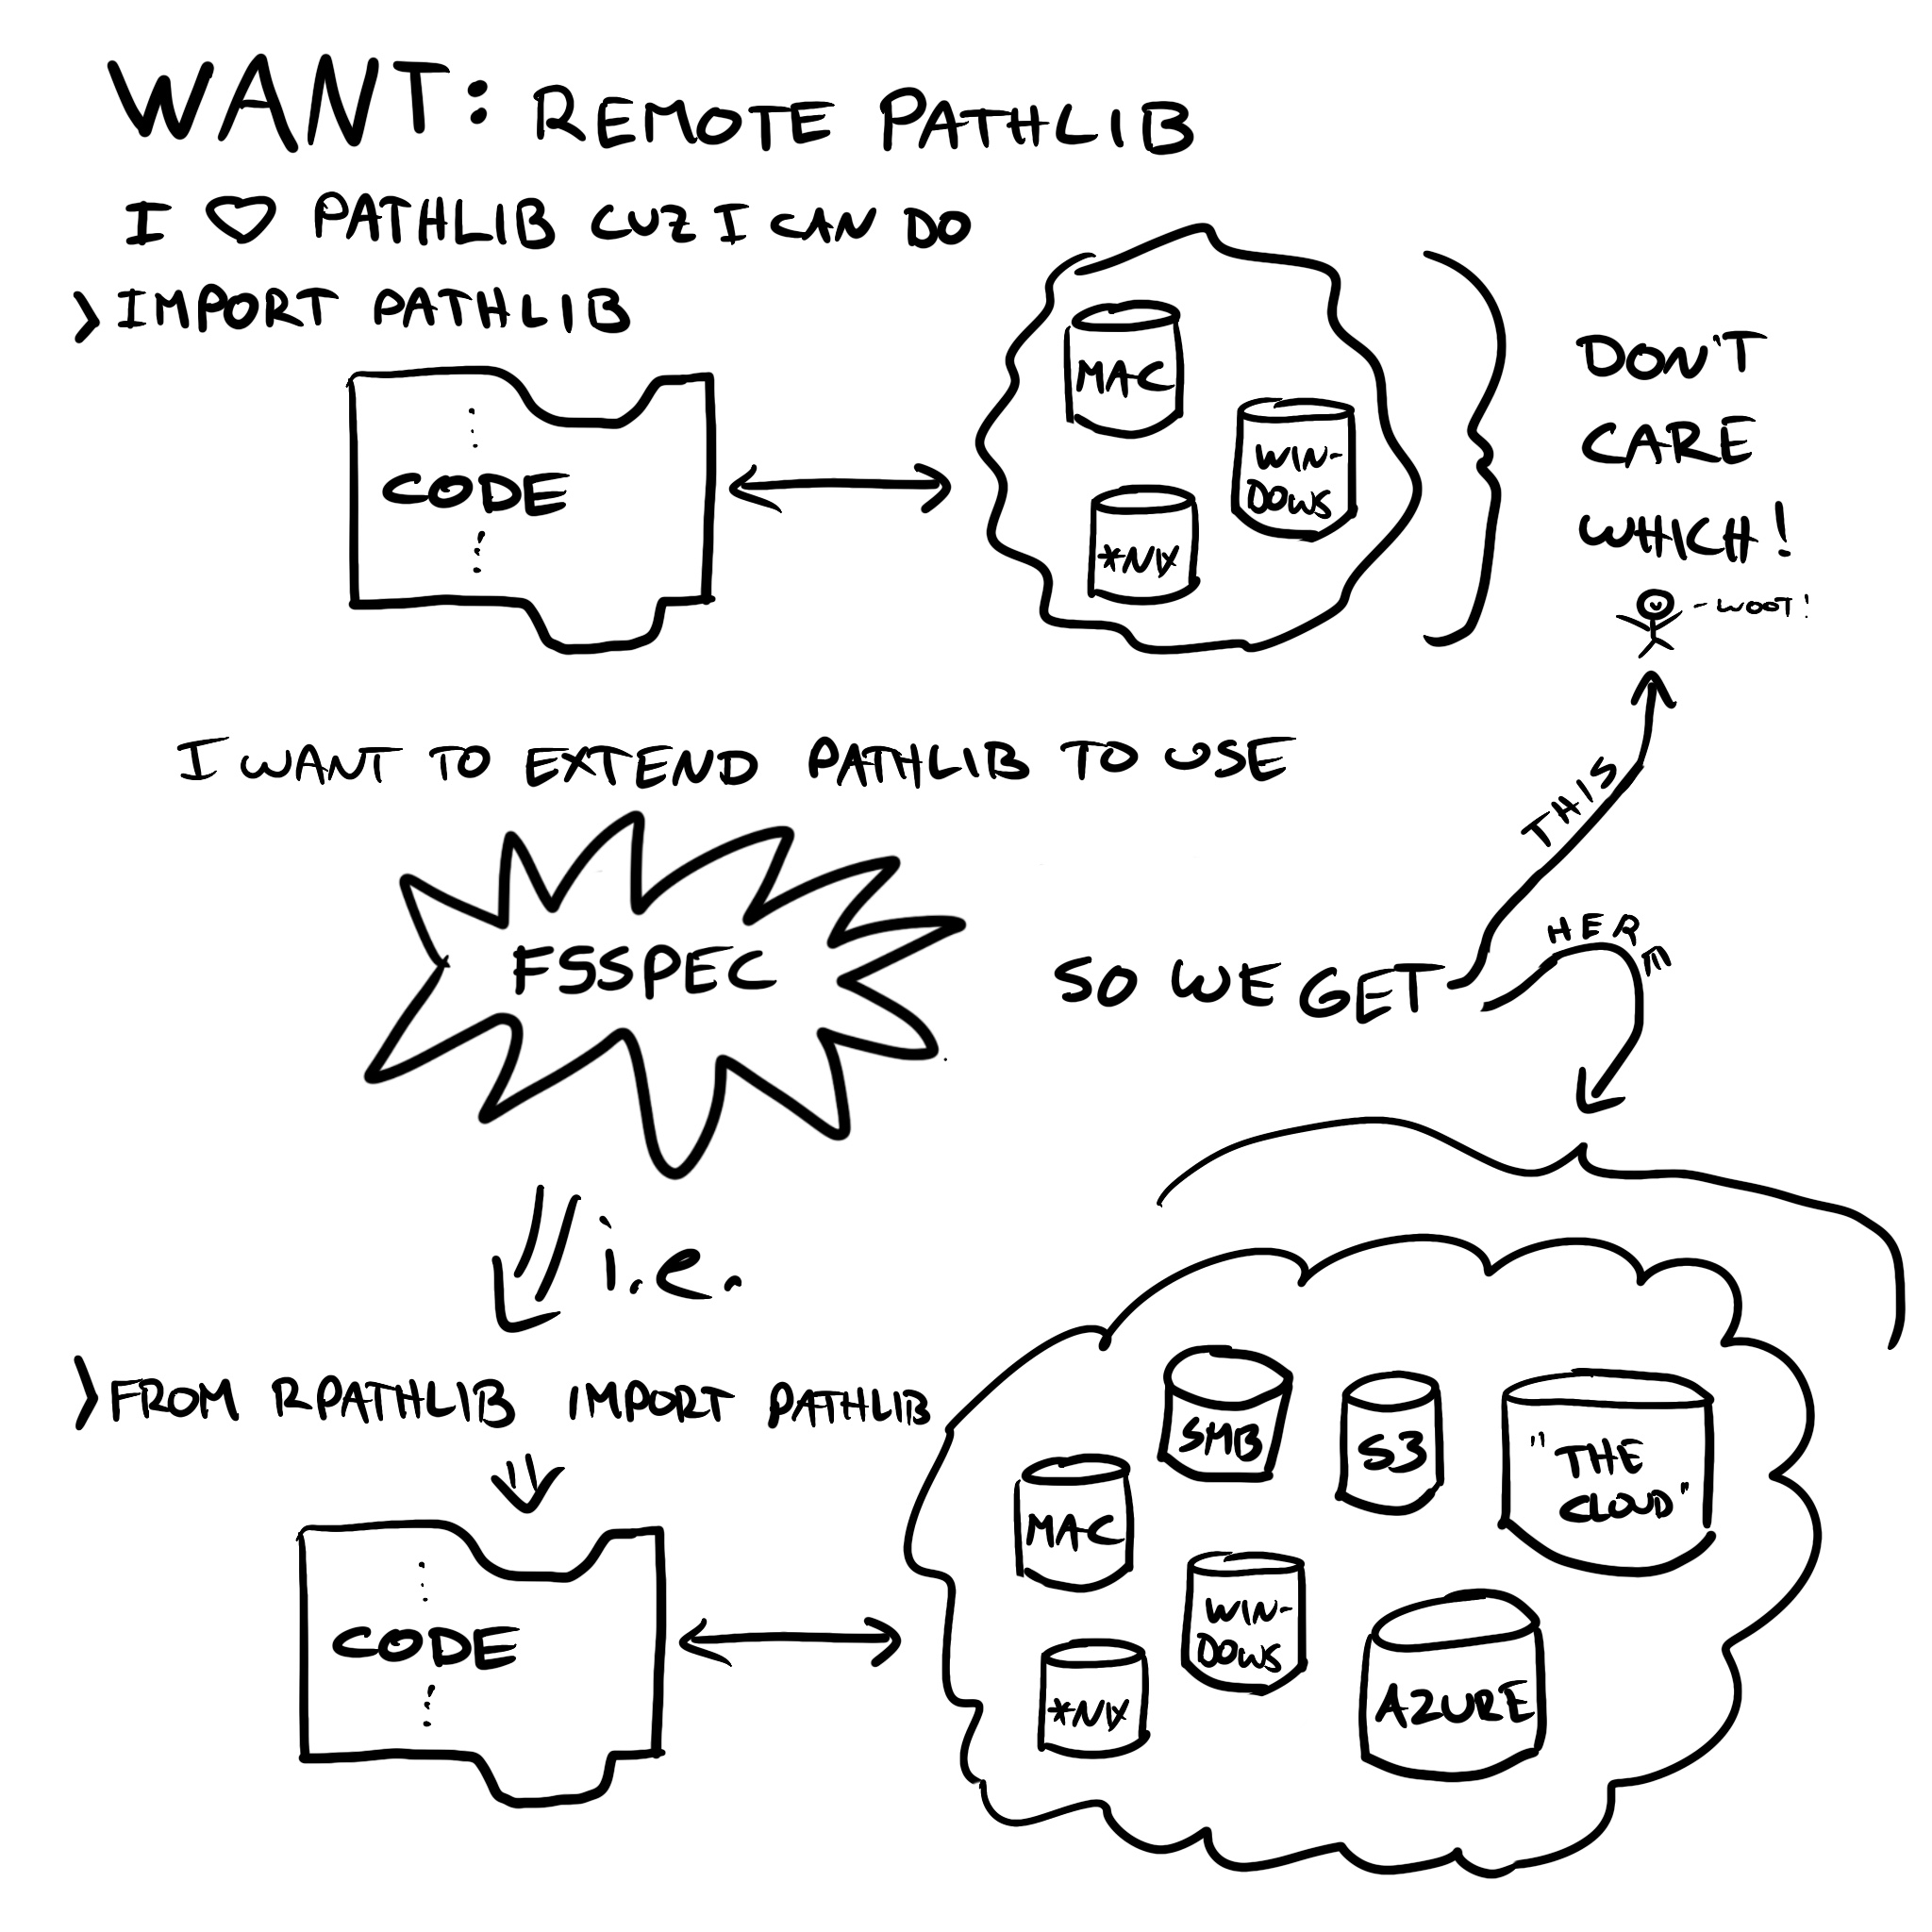 WANT: REMOTE PATHLIB
I ♡ PATHLIB CUZ I CAN DO
> IMPORT PATHLIB
CODE
MAC
WIN-
DOWS
*NIX
DON'T
CARE
WHICH!
- WOOT!
I WANT TO EXTEND PATHLIB TO USE
FSSPEC
SO WE GET
THIS
HERE
i.e.
> FROM RPATHLIB IMPORT PATHLIB
CODE
SMB
S3
"THE
CLOUD"
MAC
WIN-
DOWS
*NIX
AZURE